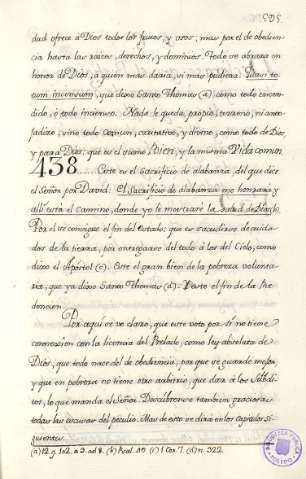 505.
dad ofrece à Dios todos los frutos, y usos, mas por el de obedien-
cia hasta las raíces, derechos, y dominios. Todo se abrasa en
honra de Dios, à quien mas daria, si mas pudiera. Quasi to-
tum incensum, que dixo Santo Thomas (a). como todo encen-
dido, ò todo incienso. Nada le queda, proprio, terreno, ni
fadizo, sino todo comun, caritativo, y divino, como todo de Dios,
y para Dios: que es el sumo Bien, y la misma Vida comun
438 Este es el Sacrificio de alabanza, del que dice
el Señor por David: El Sacrificio de alabanza me honrará: y
allí está el camino, donde yo le mostraré la Salud de Dios (b).
Por el se consigue el fin del estado; que es sacudirse de cuida-
dos de la tierra, por entregarse del todo à los del Cielo, como
dixo el Apostol (c). Este el gran bien de la pobreza volunta-
ria, que ya dixo Santo Thomas (d). Y este el fin de la Re-
dencion.
Por aqui se ve claro, que este voto por sí no tiene
connexion con la licencia del Prelado, como ley absoluta de
Dios, que todo nace del de obediencia, por que se guarde mejor,
y que en pobreza no tiene otro arbitrio, que dar à los Subdi-
tos, lo que manda el Señor. Descubrense tambien precisos
todas las escusas del peculio. Mas de esto se dirá en los capitulos si-
guientes.
(a) 12. q. 102. a. 3. ad 8. (b) Psal. 49 (c) 1 Cor. 7. (d) n. 322.